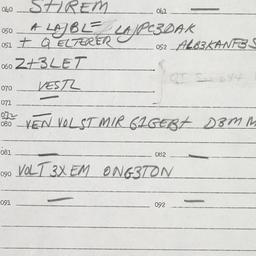 040 STIREM 041
050 A LAJBL= LAJPC3DAK
051 + Q ELTERER 052 ALB3KANFBS
060 2+3LET
070 VESTL
071
072
080 VEN VOLST MIR 61GEB+ D8MM
081 082
090 VOLT 3XEM ONG3TON
091 092